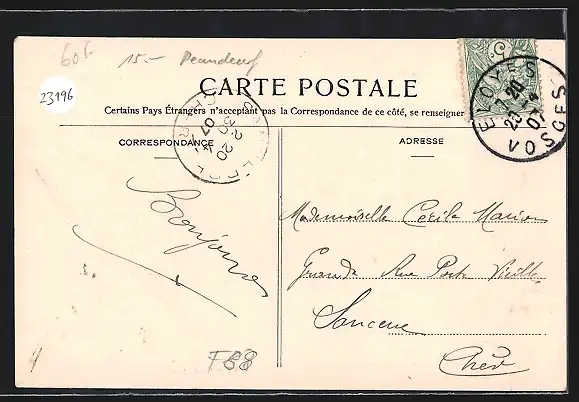 60F 15.-
CARTE POSTALE
23196
Certains Pays Étrangers n'acceptent pas la Correspondance de ce côté, se renseigner
CORRESPONDANCE
ADRESSE
ELOYES
7 20
23 -4
07
VOSGES
CHER
2 20
30 -4
07
Bonjour
Mademoiselle Cécile Marion
Grande Rue Porte Vieille
Sancerre
Cher
F88